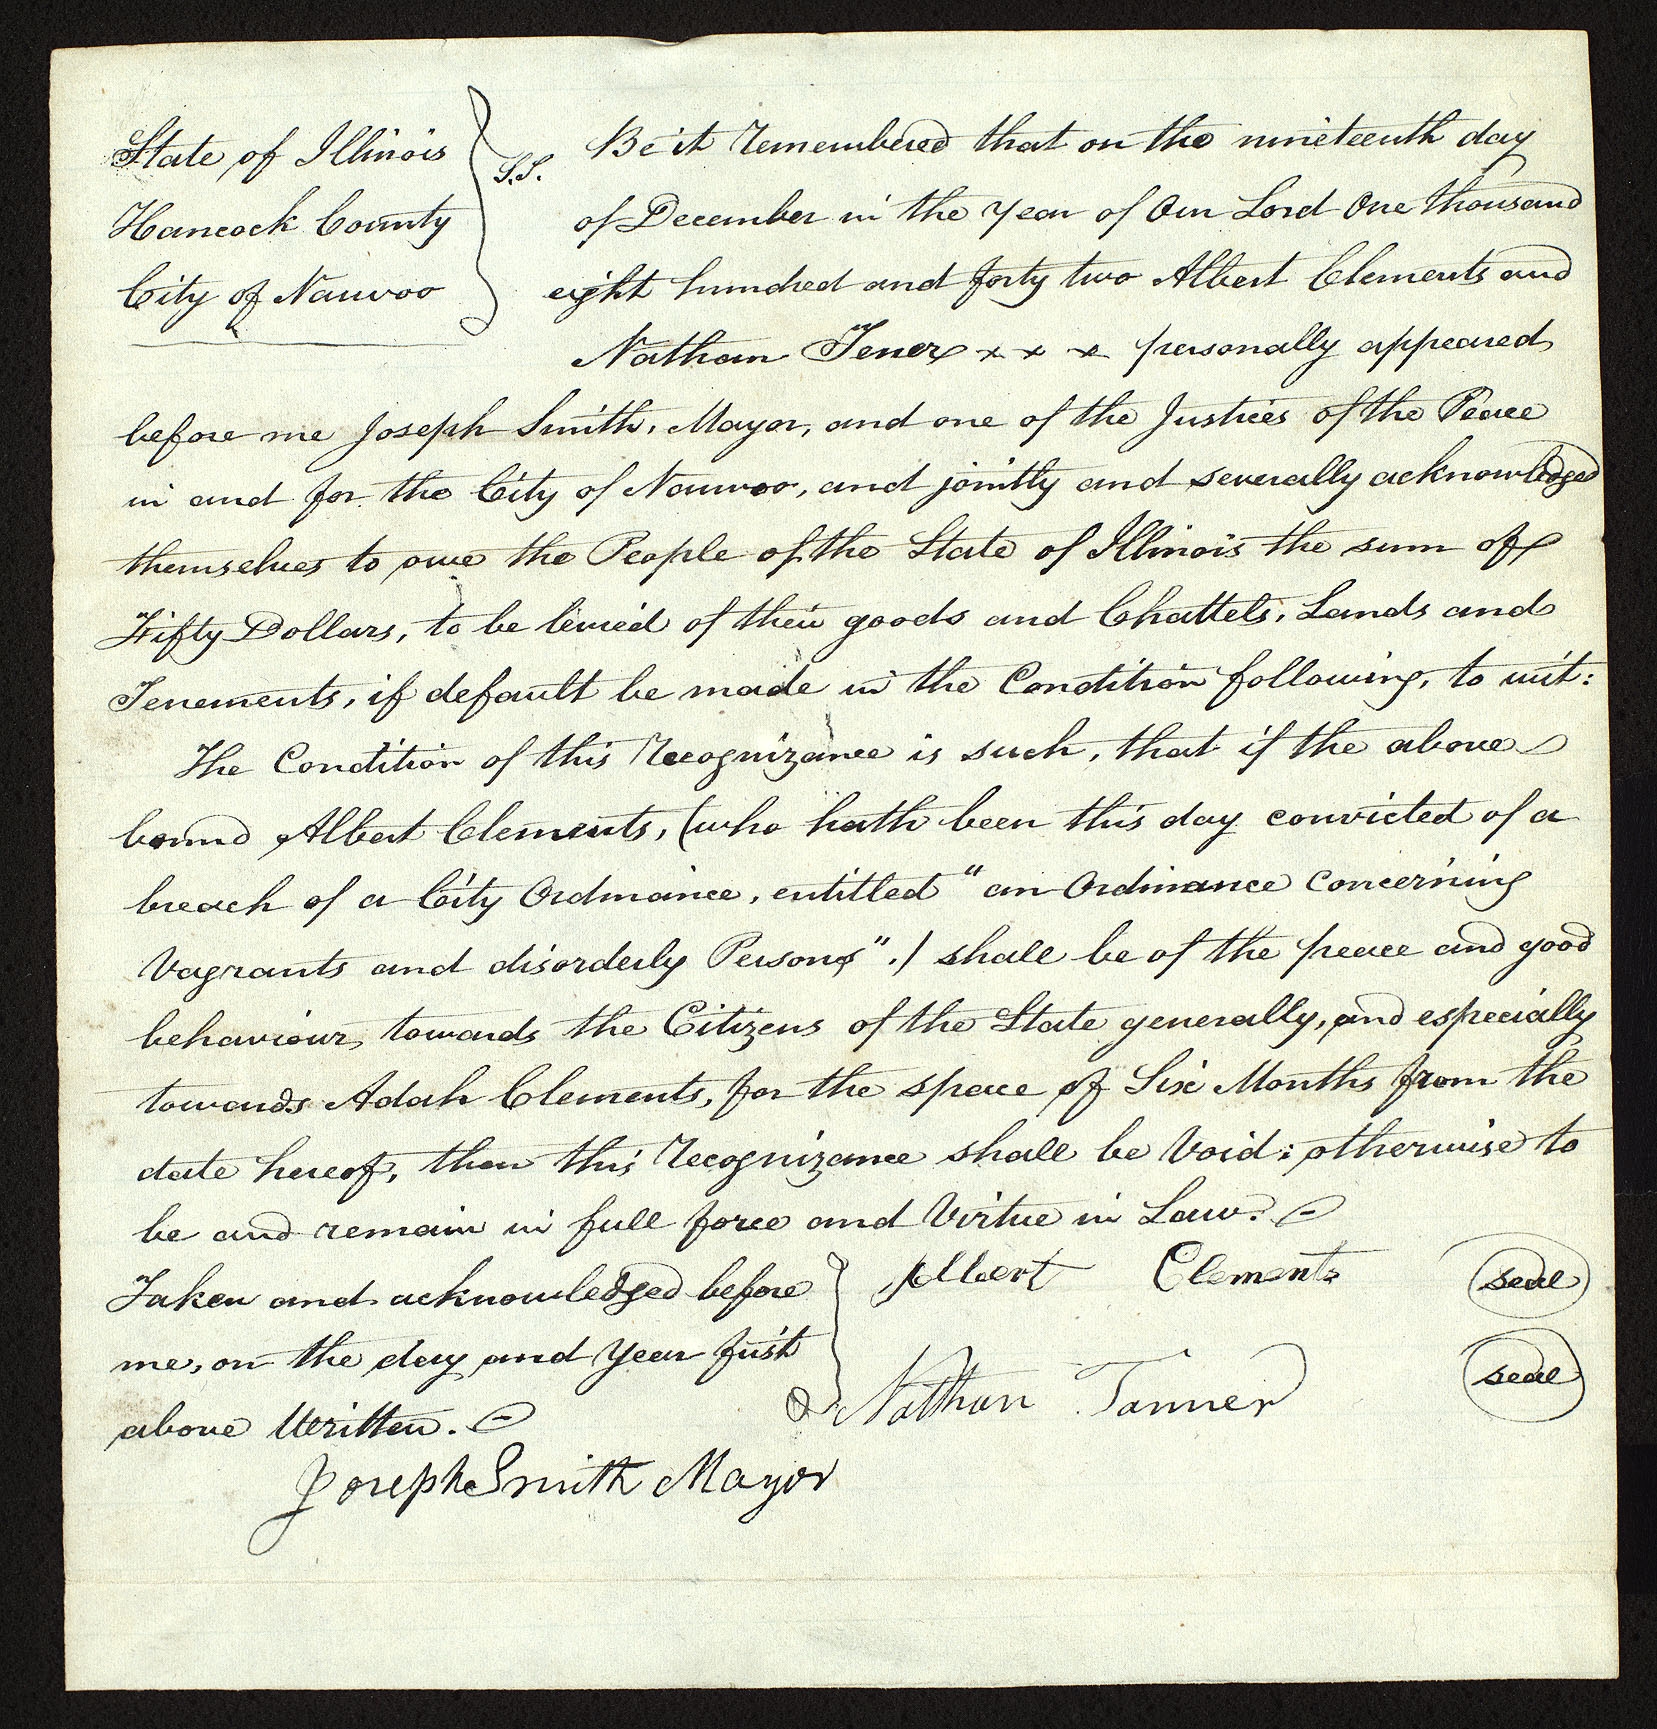 State of Illinois
Hancock County
City of Nauvoo
S.S.
Be it remembered that on the nineteenth day
of December in the year of Our Lord One thousand
eight hundred and forty two Albert Clements and
Nathan Tener x x x personally appeared
before me Joseph Smith, Mayor, and one of the Justices of the Peace
in and for the City of Nauvoo, and jointly and severally acknowledged
themselves to owe the People of the State of Illinois the sum of
Fifty Dollars, to be levied of their goods and Chattels, Lands and
Tenements, if default be made in the Condition following, to wit:
The Condition of this Recognizance is such, that if the above
bound Albert Clements, (who hath been this day convicted of a
breach of a City Ordinance, entitled "an Ordinance Concerning
Vagrants and disorderly Persons".) shall be of the peace and good
behaviour, towards the Citizens of the State generally, and especially
towards Adah Clements, for the space of Six Months from the
date hereof, then this Recognizance shall be Void: otherwise to
be and remain in full force and Virtue in Law.
Taken and acknowledged before
me, on the day and Year first
above Written.
Albert Clements seal
Nathan Tanner seal
Joseph Smith Mayor